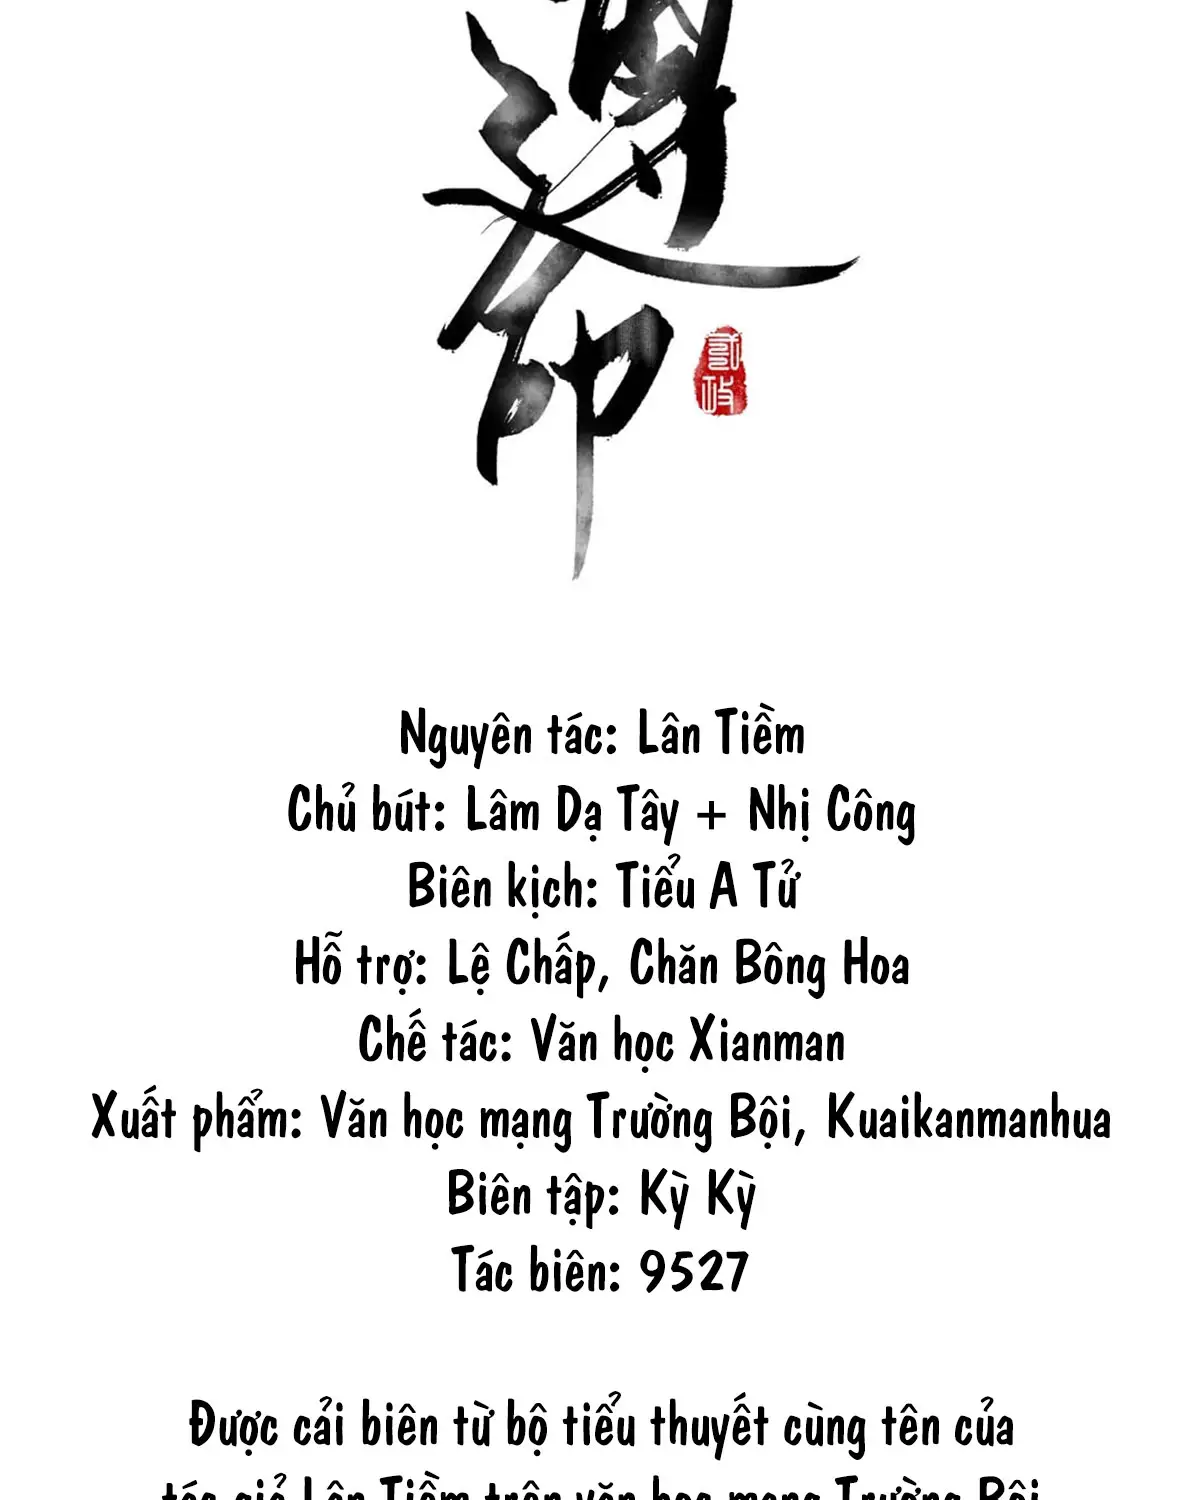 道印
Nguyên tác: Lân Tiềm
Chủ bút: Lâm Dạ Tây + Nhị Công
Biên kịch: Tiểu A Tử
Hỗ trợ: Lệ Chấp, Chăn Bông Hoa
Chế tác: Văn học Xianman
Xuất phẩm: Văn học mạng Trường Bội, Kuaikanmanhua
Biên tập: Kỳ Kỳ
Tác biên: 9527
Được cải biên từ bộ tiểu thuyết cùng tên của
tác giả Lân Tiềm trên văn học mạng Trường Bội